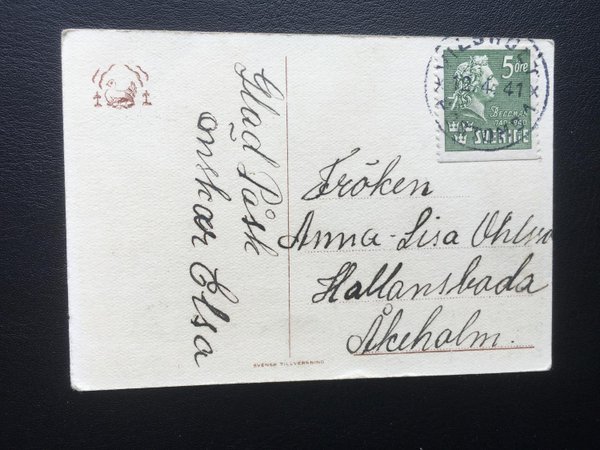 Glad Påsk
önskar Elsa
5 öre
12. 4. 41
BELLMAN
1740-1940
SVERIGE
Fröken
Anna-Lisa
Hallansbada
Åkeholm.
SVENSK TILLVERKNING